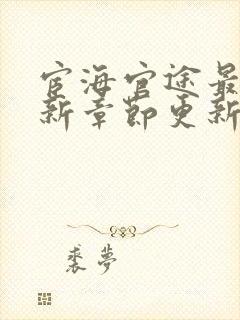 宦海官途最
新章节更新
裘梦